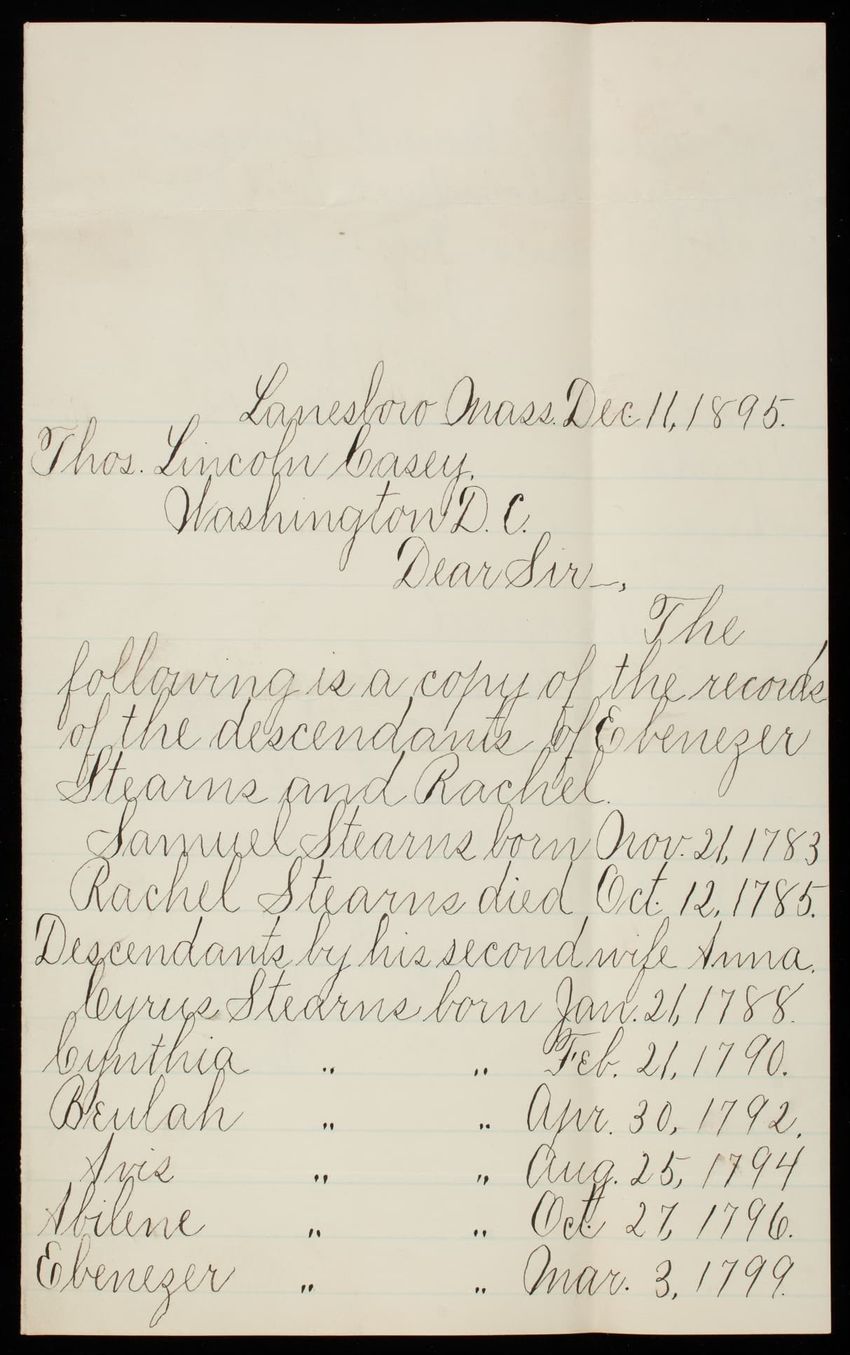 Lanesboro Mass. Dec. 11, 1895.
Thos. Lincoln Casey,
Washington D. C.
Dear Sir,
The
following is a copy of the records
of the descendants of Ebenezer
Stearns and Rachel.
Samuel Stearns born Nov. 21, 1783
Rachel Stearns died Oct. 12, 1785.
Descendants by his second wife Anna.
Cyrus Stearns born Jan. 21, 1788.
Cynthia " " Feb. 21, 1790.
Beulah " " Apr. 30, 1792.
Avis " " Aug. 25, 1794
Abilene " " Oct. 27, 1796.
Ebenezer " " Mar. 3, 1799.